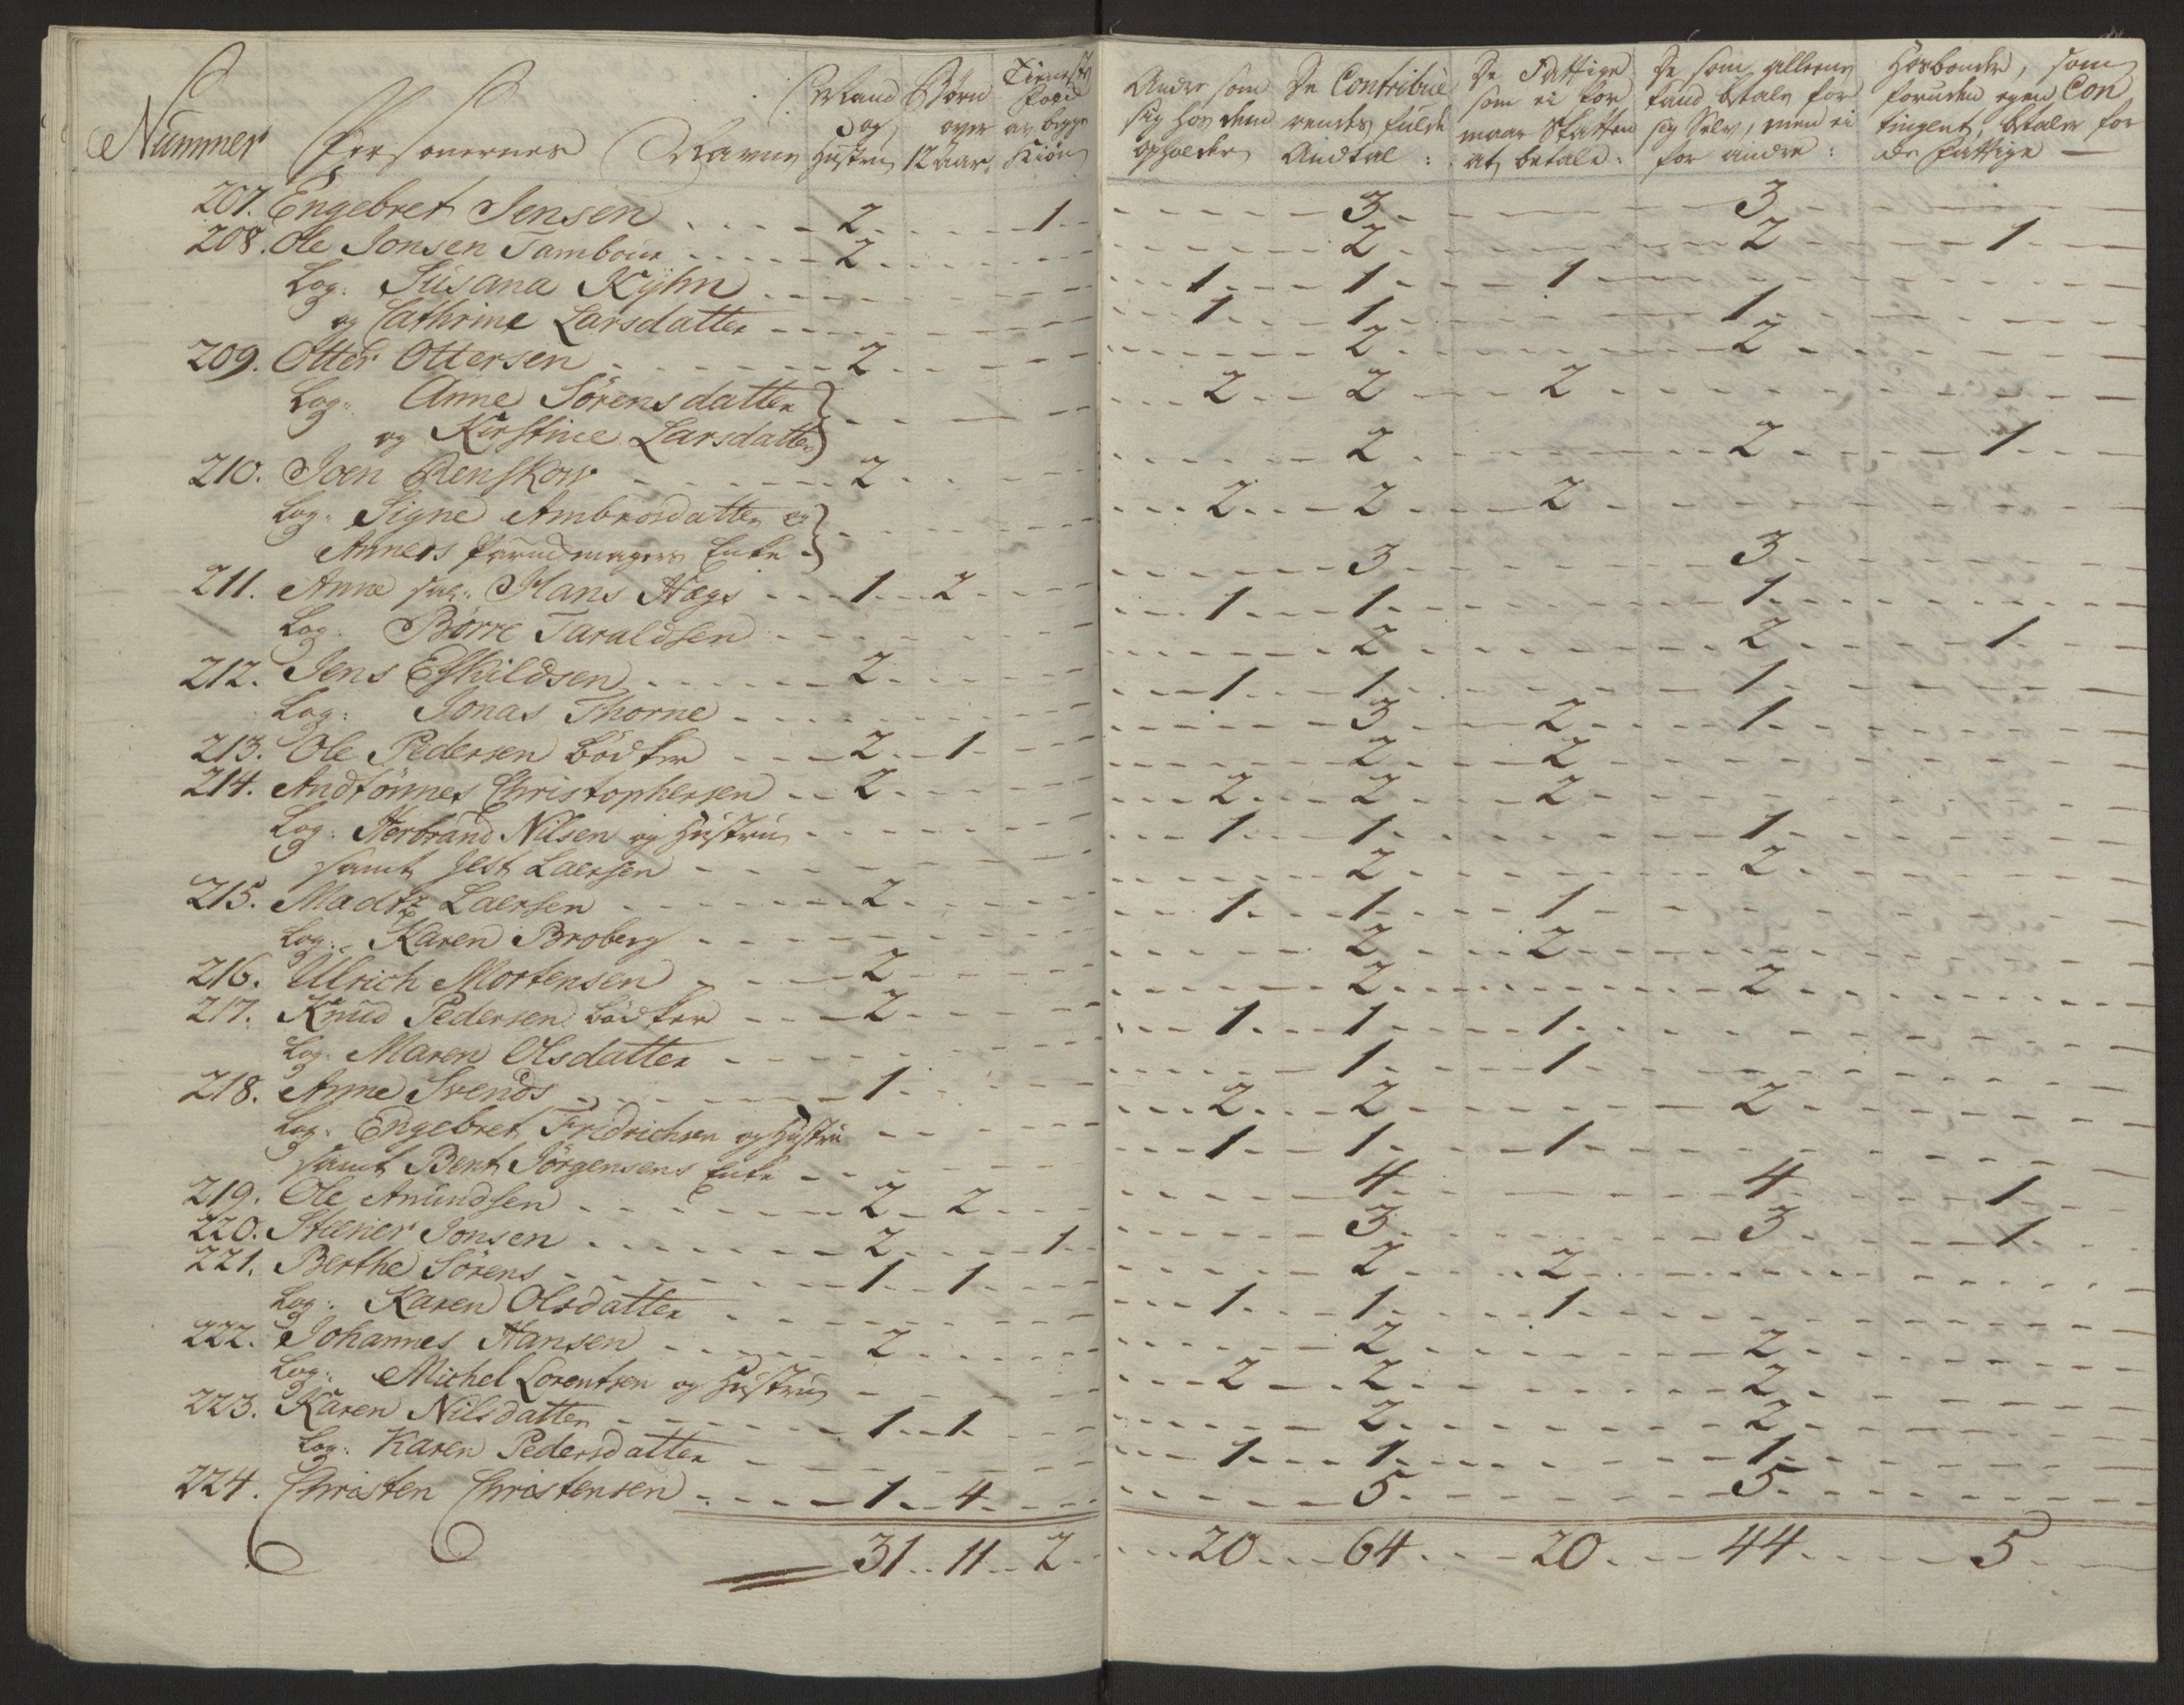 Nummer Personernes Navne Mand og Hustru Børn over 12 Aar. Tieneste Folk av begge Kiøn Andre som sig hos dem opholder De Contribuerendes fulde Andtal : De Fattige som ei formaar Skatten at betale : De som alleene kand betale for sig Selv, men ei for andre : Hosbonder, som foruden egen Contingent, betaler for de Fattige
207. Engebret Jensen 2 1 3 3
208. Ole Jonsen Tambour 2 2 2 1
Log: Susana Kÿhn 1 1 1
og Cathrine Larsdatter 1 1 1
209. Otter Ottersen 2 2 2
Log: Anne Sørensdatter
og Kirstine Larsdatter 2 2 2
210. Joen Renskow 2 2 2 1
Log: Signe Ambrosdatter og
Anners Enke 2 2 2
211. Anne sal: Hans Hægs 1 2 3 3
Log: Børre Taraldsen 1 1 1
212. Jens Eskildsen 2 2 2 1
Log: Jonas Thorne 1 1 1
213. Ole Pedersen Bødker 2 1 3 2 1
214. Andtønnes Christophersen 2 2 2
Log: Herbrand Nilsen og Hustru 2 2 2
samt Jest Laersen 1 1 1
215. Madtz Laersen 2 2 2
Log: Karen Broberg 1 1 1
216. Ulrich Mortensen 2 2 2
217. Knud Pedersen Bødker 2 2 2
Log: Maren Olsdatter 1 1 1
218. Anne Svends 1 1 1
Log: Engebret Fridrichsen og Hustru 2 2 2
samt Bent Jørgensens Enke 1 1 1
219. Ole Amundsen 2 2 4 4 1
220. Stener Jonsen 2 1 3 3 1
221. Berthe Sørens 1 1 2 2
Log: Karen Olsdatter 1 1 1
222. Johannes Hansen 2 2 2
Log: Michel Lorentsen og Hustru 2 2 2
223. Karen Nilsdatter 1 1 2 2
Log: Karen Pedersdatter 1 1 1
224. Christen Christensen 1 4 5 5
31 11 2 20 64 20 44 5